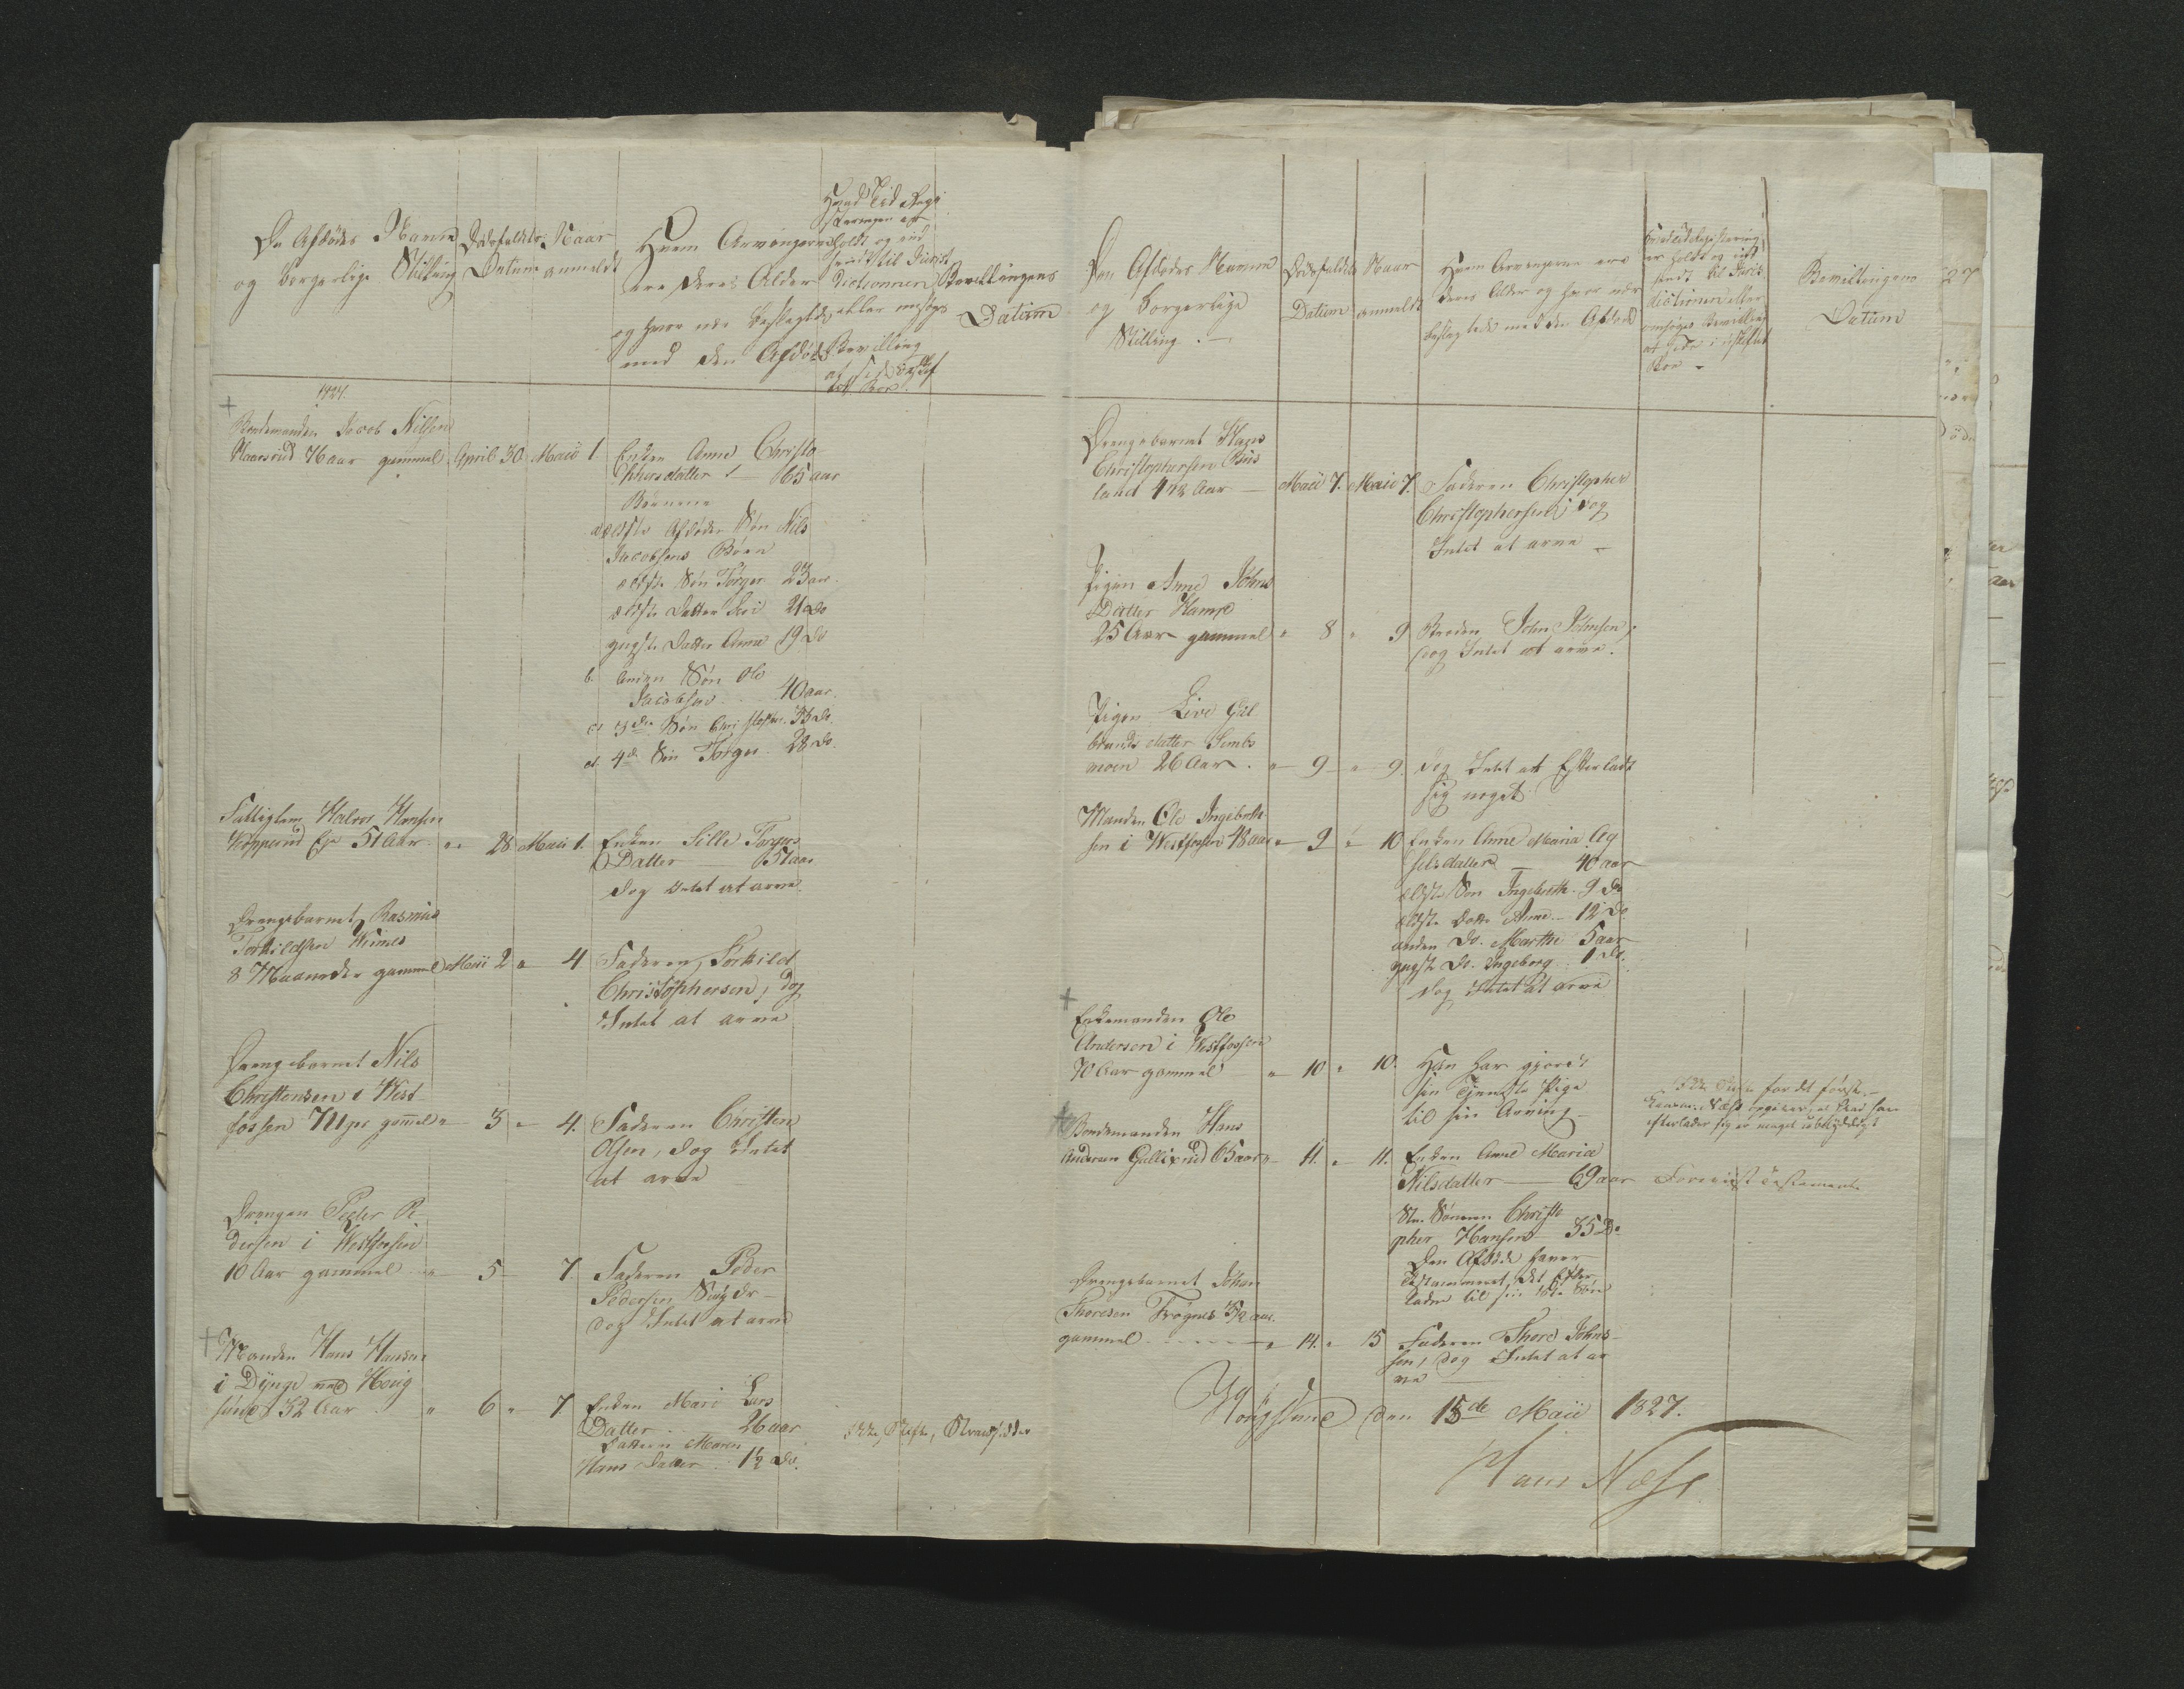 De Afdødes Navne
og borgerlige Stilling
Dødsfaldets
Datum
Naar
anmeldt
Hvem Arvingerne
ere deres Alder
og hvor nær beslægtede
med den Afdøde
Hvad Tid Regi
steringen er
holdt og ind
sendt til Juris
dictionnen
eller ansøges
Bevilling
at side i uskif
tet Boe.
Bevillingens
Datum
1827.
+
Bondemanden Jacob Nilsen
Haarsrud 76 aar gammel
April 30
Maii 1
Enken Anne Christo
phersdatter 65 aar
Børnene
a ældste Afdøde Søn Nils
Jacobsens Børn
ældste Søn Törger 23 aar
ældste Datter Siri 21 do
yngste Datter Anne 19 do
b. anden Søn Ole
Jacobsen 40 aar
c. 3die Søn Christopher 33 do.
d. 4de Søn Torger 28 do.
Fattiglem Halvor Hansen
Kopperud Eje 51 Aar
" " 28
Maii 1.
Enken Sille Torgers
Datter 51 aar
dog intet at arve
Drengebarnet Rasmus
Torkildsen Wimes
8 Maaneder gammel
Maii 2
" 4
Faderen, Torkild
Christophersen, dog
Intet at arve
Drengebarnet Nils
Christensen i West-
fossen 7 Mr gammel
" 3
" 4.
Faderen Christen
Olsen, dog Intet
at arve
Drengen Peder Pe
dersen i Westfossen
10 Aar gammel
" 5
7
Faderen Peder
Pedersen
dog Intet at arve
+
Manden Hans Hansen
i Dynge ved Houg
sund 32 Aar
" 6
" 7.
Enken Mari Lars
Datter 26 aar
Datteren Maren
Hans Datter 1½ do.
Ikke Skifte, Strandsidder
Den Afdødes Navne
og borgerlige
Stilling.
Dødsfaldets
Datum
Naar
anmeldt
Hvem Arvingerne ere
deres Alder og hvor nær
beslægtede med den Afdøde
Hvad Tid Registering
er holdt og ind
sendt til Juris
dictionen eller
ansøges Bevilling
at side i uskiftet
Boe
Bevillingens
Datum
Drengebarnet Hans
Christophersen Buus
land 4 1/2 Aar
Maii 7.
Maii 7.
Faderen Christopher
Christophersen, dog
Intet at arve
Pigen Anne Johns
Datter Kampe
25 Aar gammel
" 8
" 9
Broder John Johnsen,
dog Intet at arve.
Pigen Live Gul
brandsdatter Sembs
moen 26 Aar.
" 9
" 9.
dog Intet at Efterladt
sig noget
Manden Ole Ingebreth
sen i Westfossen 48 aar
" 9
" 10
Enken Anne Maria Ag
selsdatter 40 aar
ældste Søn Ingebreth 9 do
ældste Datter Anne 12 do
anden do. Marthe 5 aar
yngste do. Ingeborg 1 do.
dog Intet at arve
+
Enkemanden Ole
Andersen i Westfossen
70 Aar gammel
" 10
" 10.
Han har gjordt
sin Tjeneste Pige
til sin Arving
Ikke Skifte for det første
Næss opgiver, at hvad han
efterlader sig er meget ubetydeligt
+
Bondemanden Hans
Andersen Gullixrud 65 aar
" 11.
" 11.
Enken Anne Maria
Nilsdatter 69 aar
Foreviist Testamente
Sten Sønnen Christo
pher Hansen 35 do
Den Afdøde haver
Testamenteret, det Efter
ladte til sin
Drengebarnet Johan
Thoresen Frøgnes 3½ aar
gammel
" 14.
" 15
Faderen Thore Johns
sen, dog Intet at ar
ve
Hougsund den 15de Maii 1827.
Hans Næss